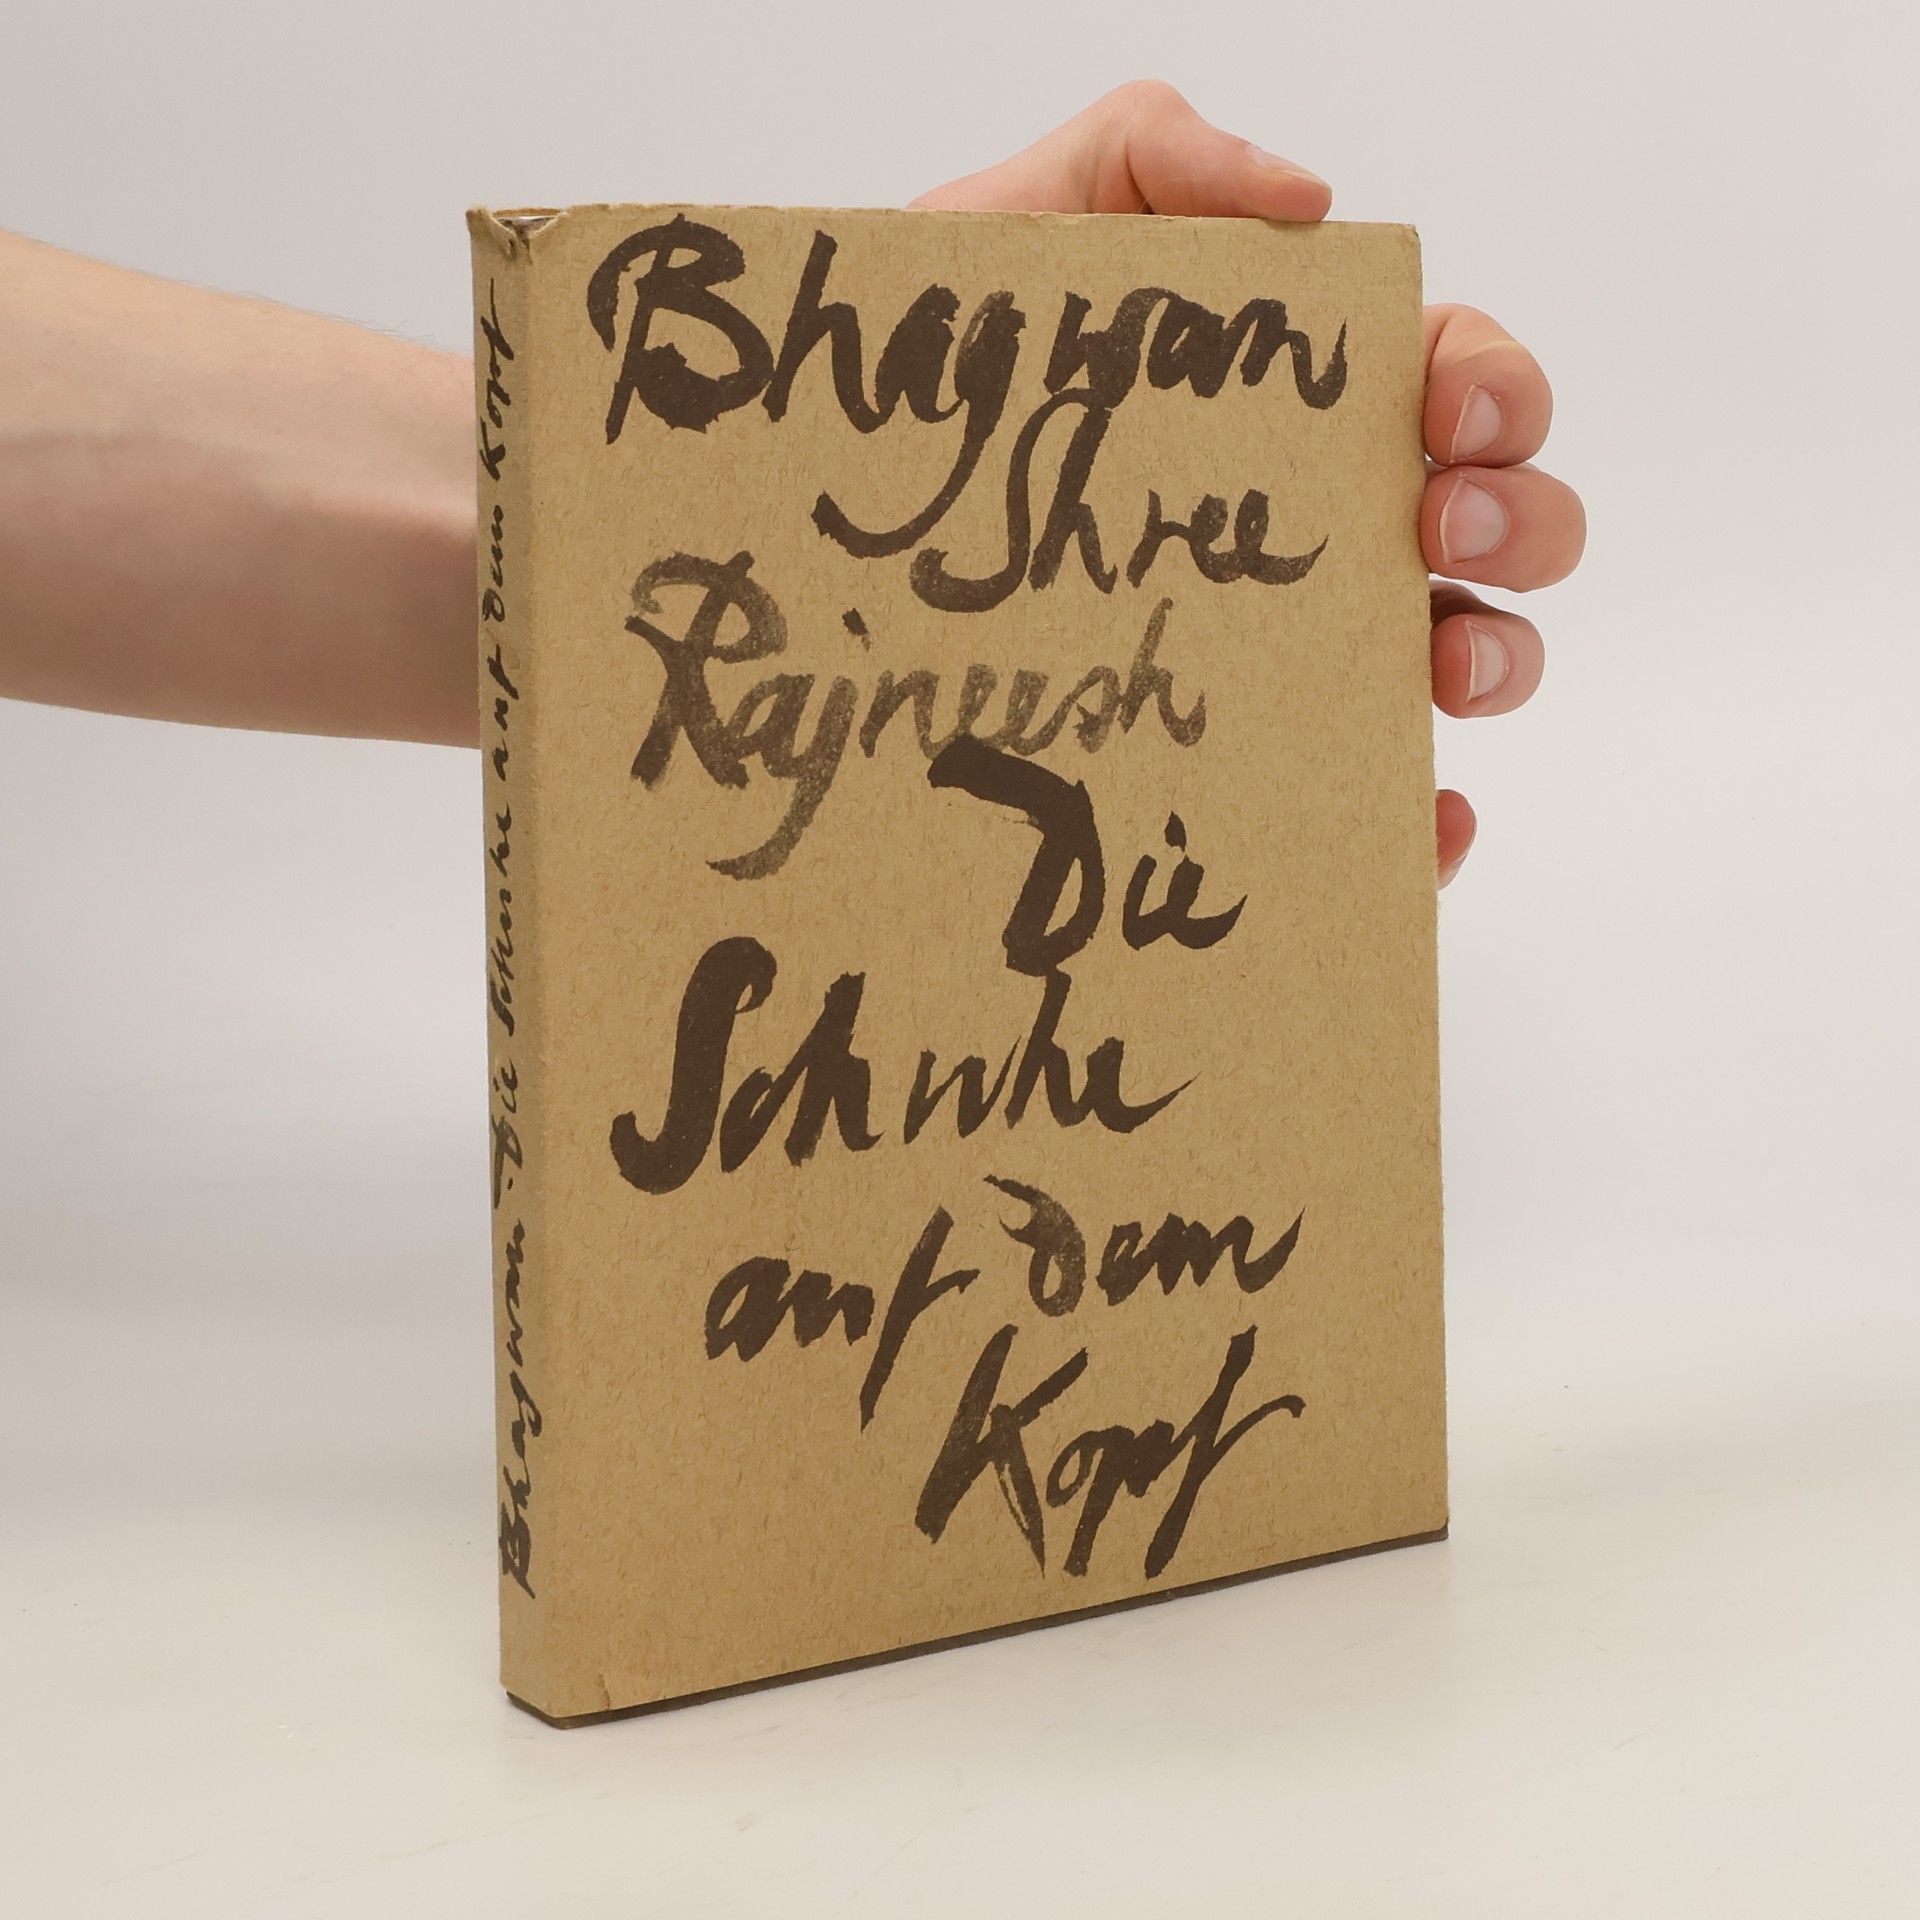 Bhagwan
Shree
Rajneesh
Die
Schuhe
auf dem
Kopf
Bhagwan: Die Schuhe auf dem Kopf